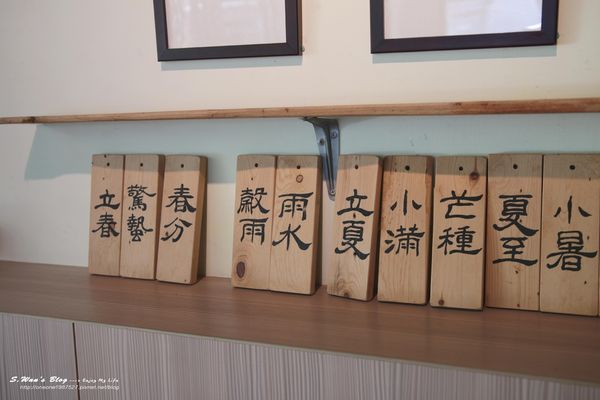 立春
驚蟄
春分
穀雨
雨水
立夏
小滿
芒種
夏至
小暑
S.Wan's Blog ---- Enjoy My Life
http://oneone1987527.pixnet.net/blog